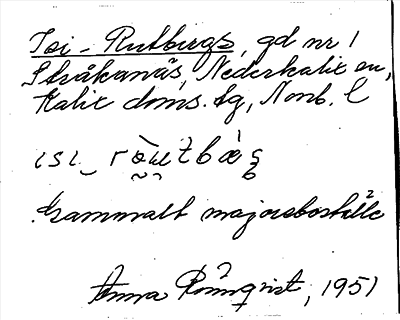 Isi-Rutbergs, gd nr 1
Stråkanäs, Nederkalix sn,
Kalix doms. tg, Norrb. l
Gammalt majorsboställe
Anna Rönnqvist, 1951